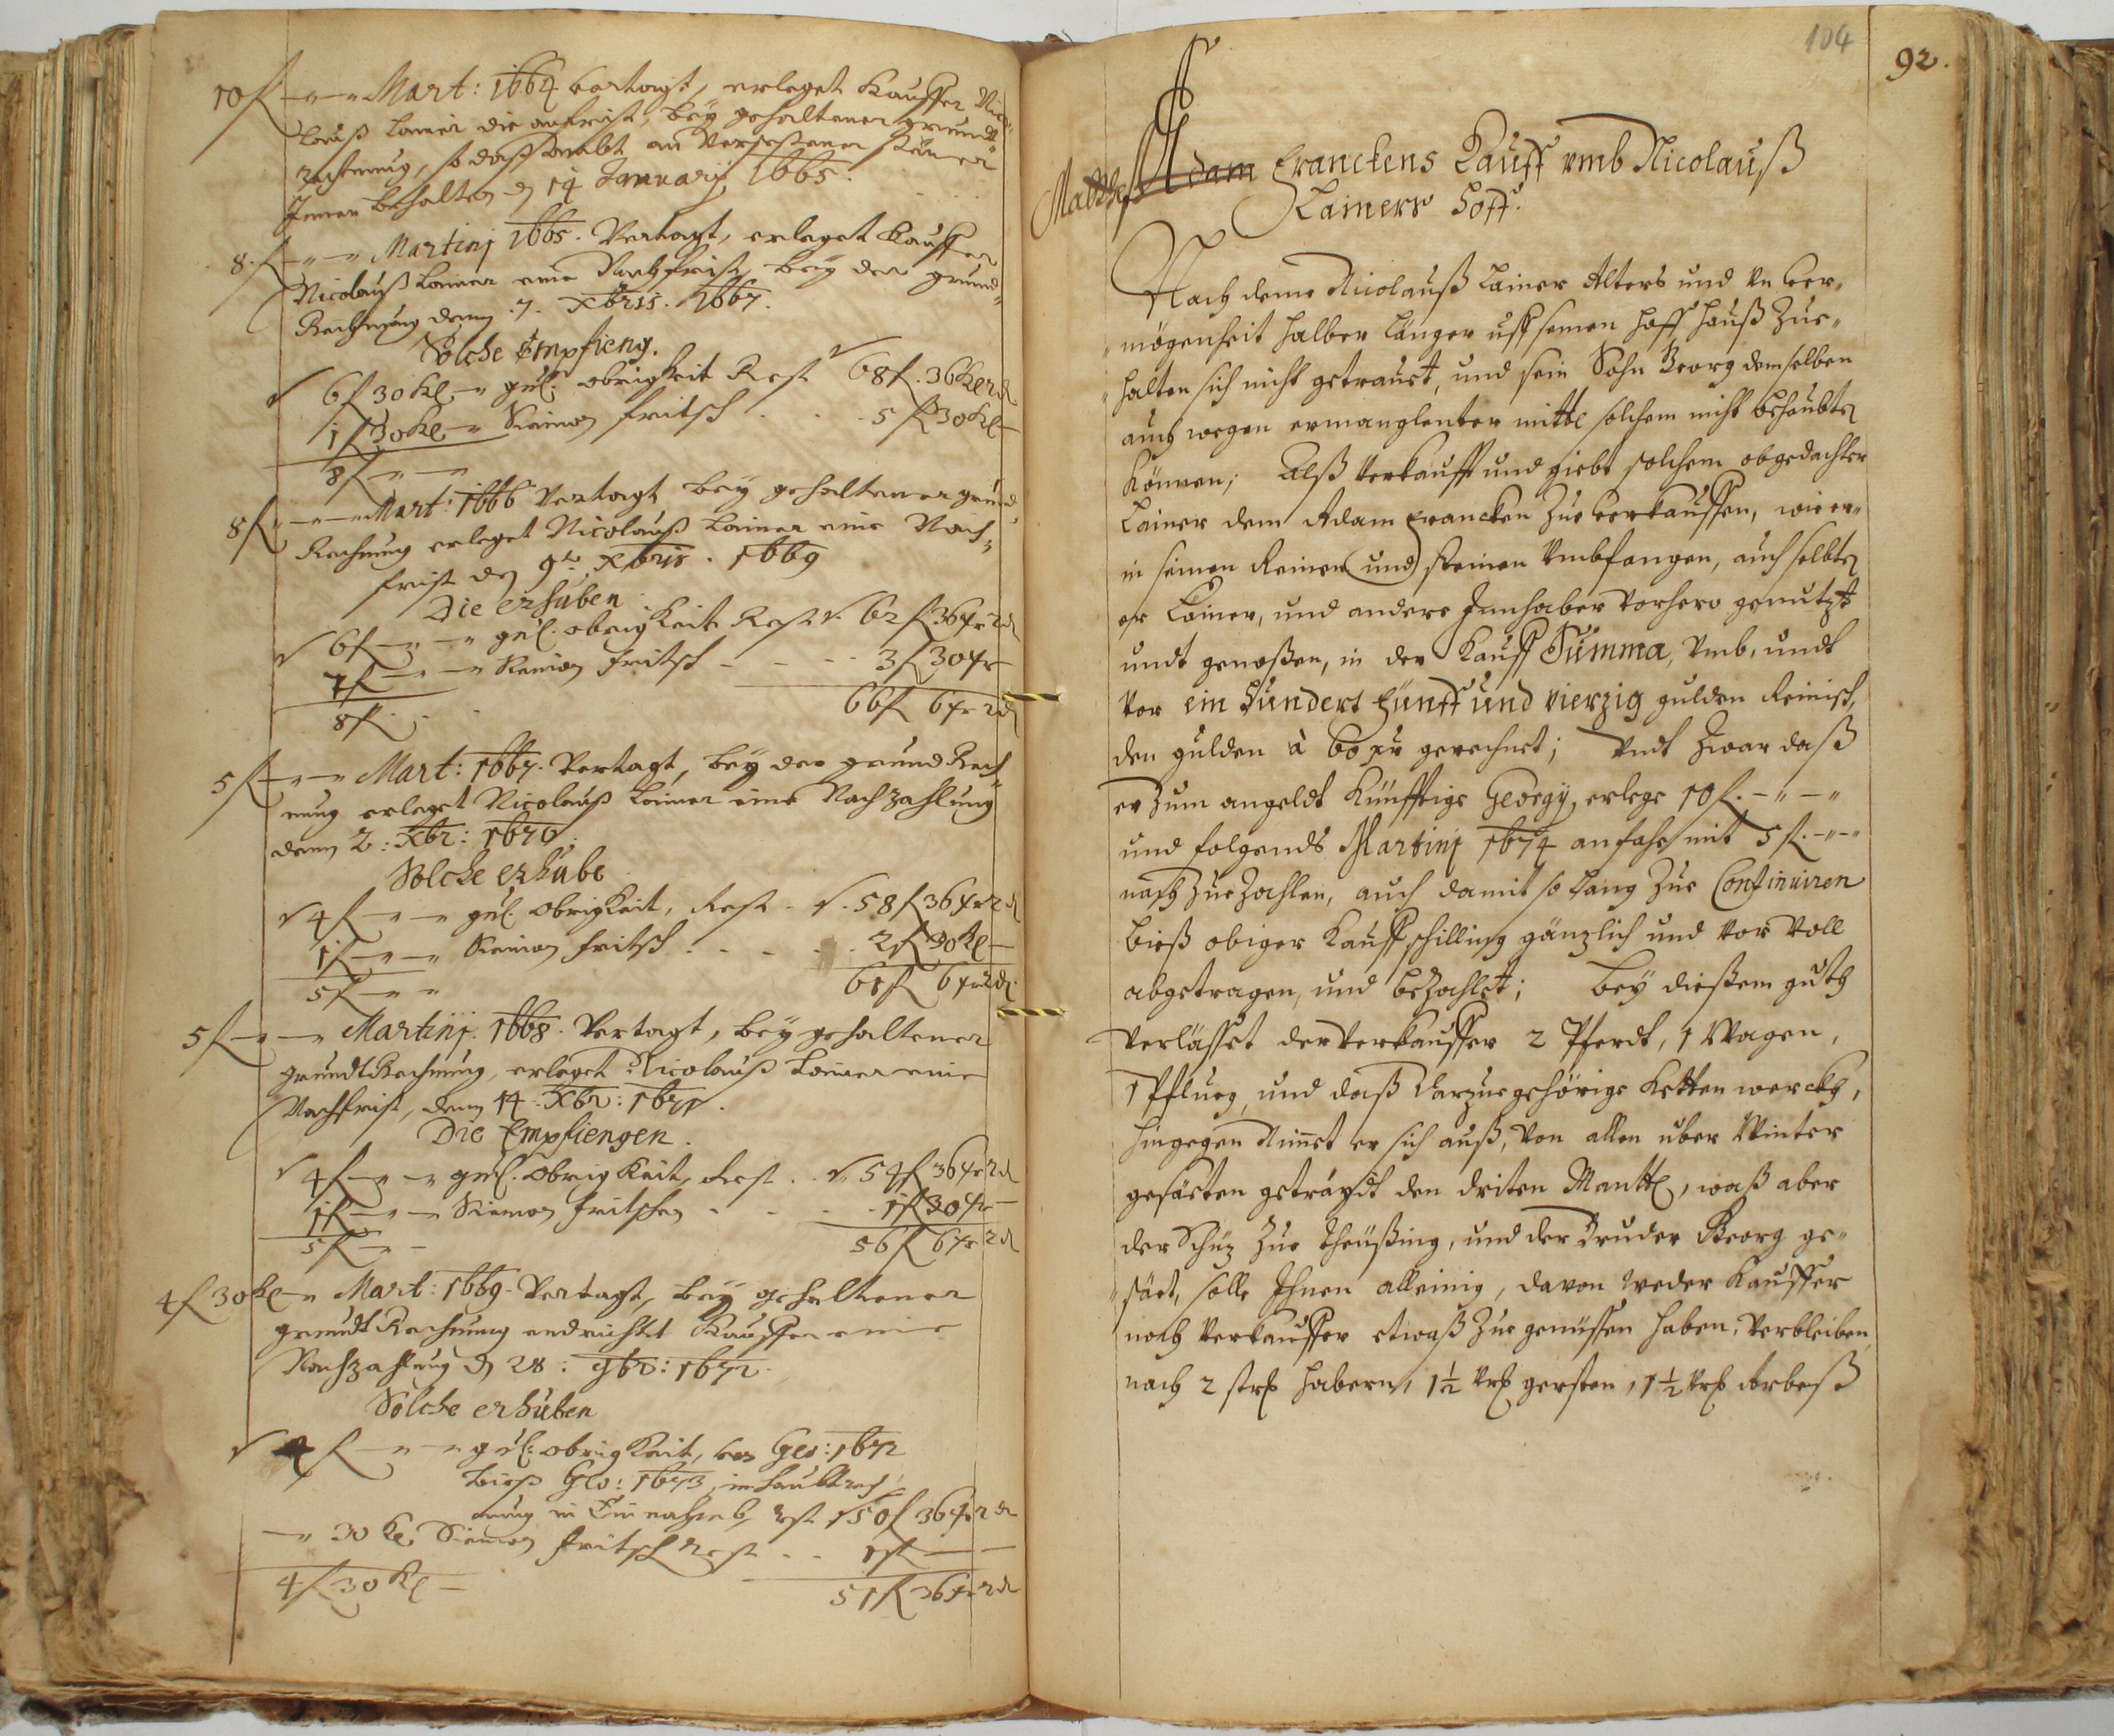 10 f — " — " Mart: 1664 vertagt, erleget Kauffer Nico=
lauß Lainer die anfrist, bey gehaltener grundt
rechnung, so daß ambt an
Innen behalten den 14 January 1665.
8. f — " — " Martinj 1665. Vertagt, erleget Kauffer
Nicolauß Lainer eine Nachfrist, bey der grund=
Rechnung denn 7. Xbris. 1667.
Solche Empfieng.
6 f 30 Kl — " gnl: obrigkeit Rest 68 f. 36 Kl 2 d
1 f 30 Kl — " Siemon Fritsch . . . 5 f 30 Kl —
8 f — " —
8 f " — " — " Mart: 1666 Vertagt bey gehaltener grund
Rechnung erleget Nicolauß Lainer eine Nach=
frist den 9ts Xbris. 1669
Die erhuben
6 f — " — " gnl. obrigkeit Rest 62 f 36 xr 2 d
2 f — " — " Siemon Fritsch — — — 3 f 30 xr —
8 f . — 66 f 6 xr 2 d
5 f — " — " Mart: 1667. Vertagt, bey der grund Rech=
nung erleget Nicolauß Lainer eine Nachzahlung
denn 2: Xbr: 1670.
Solche erhube
4 f — " — " gnl. Obrigkeit, Rest . 58 f 36 xr 2 d
1 f — " — " Siemon Fritsch . - - - . 2 f 30 Kl —
5 f — " " 61 f 6 xr 2 d
5 f — " — " Martinj. 1668. Vertagt, bey gehaltener
grundt Rechnung, erleget Nicolauß Lainer eine
Nachfrist, denn 14. Xbr: 1671.
Die Empfiengen.
4 f — " — " gnl. Obrigkeit, Rest . . 54 f 36 xr 2 d
1 f — " — " Siemon Fritschen - - - . 1 f 30 xr —
5 f — " — 56 f 6 xr 2 d
4 f 30 Kl — " Mart: 1669. Vertagt, bey gehaltener
grundt Rechnung endrichtet Kauffer eine
Nachzahlung den 28: 9br: 1672.
Solche erhuben
4 f — " — " gnl: obrigkeit, von Geo: 1672
bieß Geo: 1673, in haubtrech=
nung in Einnahmb, rest 50 f 36 xr 2 d
— " 30 Kl Siemon Fritsch Rest . . 1 f — —
4 f 30 Kl — 51 f 36 xr 2 d
104
92.
Matthes Adam Franckens Kauff vmb Nicolauß
Lainers Hoff.
Nach deme Nicolauß Lainer Alters und Un ver=
mögenheit halber länger uff seinen Hoff Hauß Zue=
halten sich nicht getrauet, und sein Sohn Georg demselben
auch wegen ermanglenter mittel solchem nicht behaubten
Können; Alß Verkaufft und giebt solchem obgedachter
Lainer dem Adam Francken Zue Verkauffen, wie er=
in seinen Reinen und steinen Vmbfangen, auch selbten
er Lainer, und andere Innhaber vorhero genutzt
undt genoßen, in der Kauff Summa, Vmb, undt
Vor ein Hundert Fünff und vierzig gulden Reinisch,
den gulden à 60 xr gerechnet; Vndt Zwar daß
er Zum angeldt Künfftige Georgy, erlege 10 f. — " — "
und folgends Martinj 1674 anfahe mit 5 f. — " — "
nach Zue Zahlen, auch damit so lang Zue Continuiren
bieß obiger Kauffschilling gänzlich und vor Voll
abgetragen, und bezahlet; Bey dießem guth
Verlässet der Verkauffer 2 Pferdt, 1 Wagen,
1 Pflueg, und daß darzue gehörige Kettenwerckh,
hingegen Nimet er sich auß, Von allen über Winter
gesäeten geträydt den driten Mantl, waß aber
der Schüz Zue Theüßing, und der Bruder Georg ge=
säet, solle Ihnen alleinig, davon weder Kauffer
noch Verkauffer etwaß Zue genüssen haben, Verbleiben
nach 2 strl habern, 1½ strl gersten, 1½ strl Arbeß